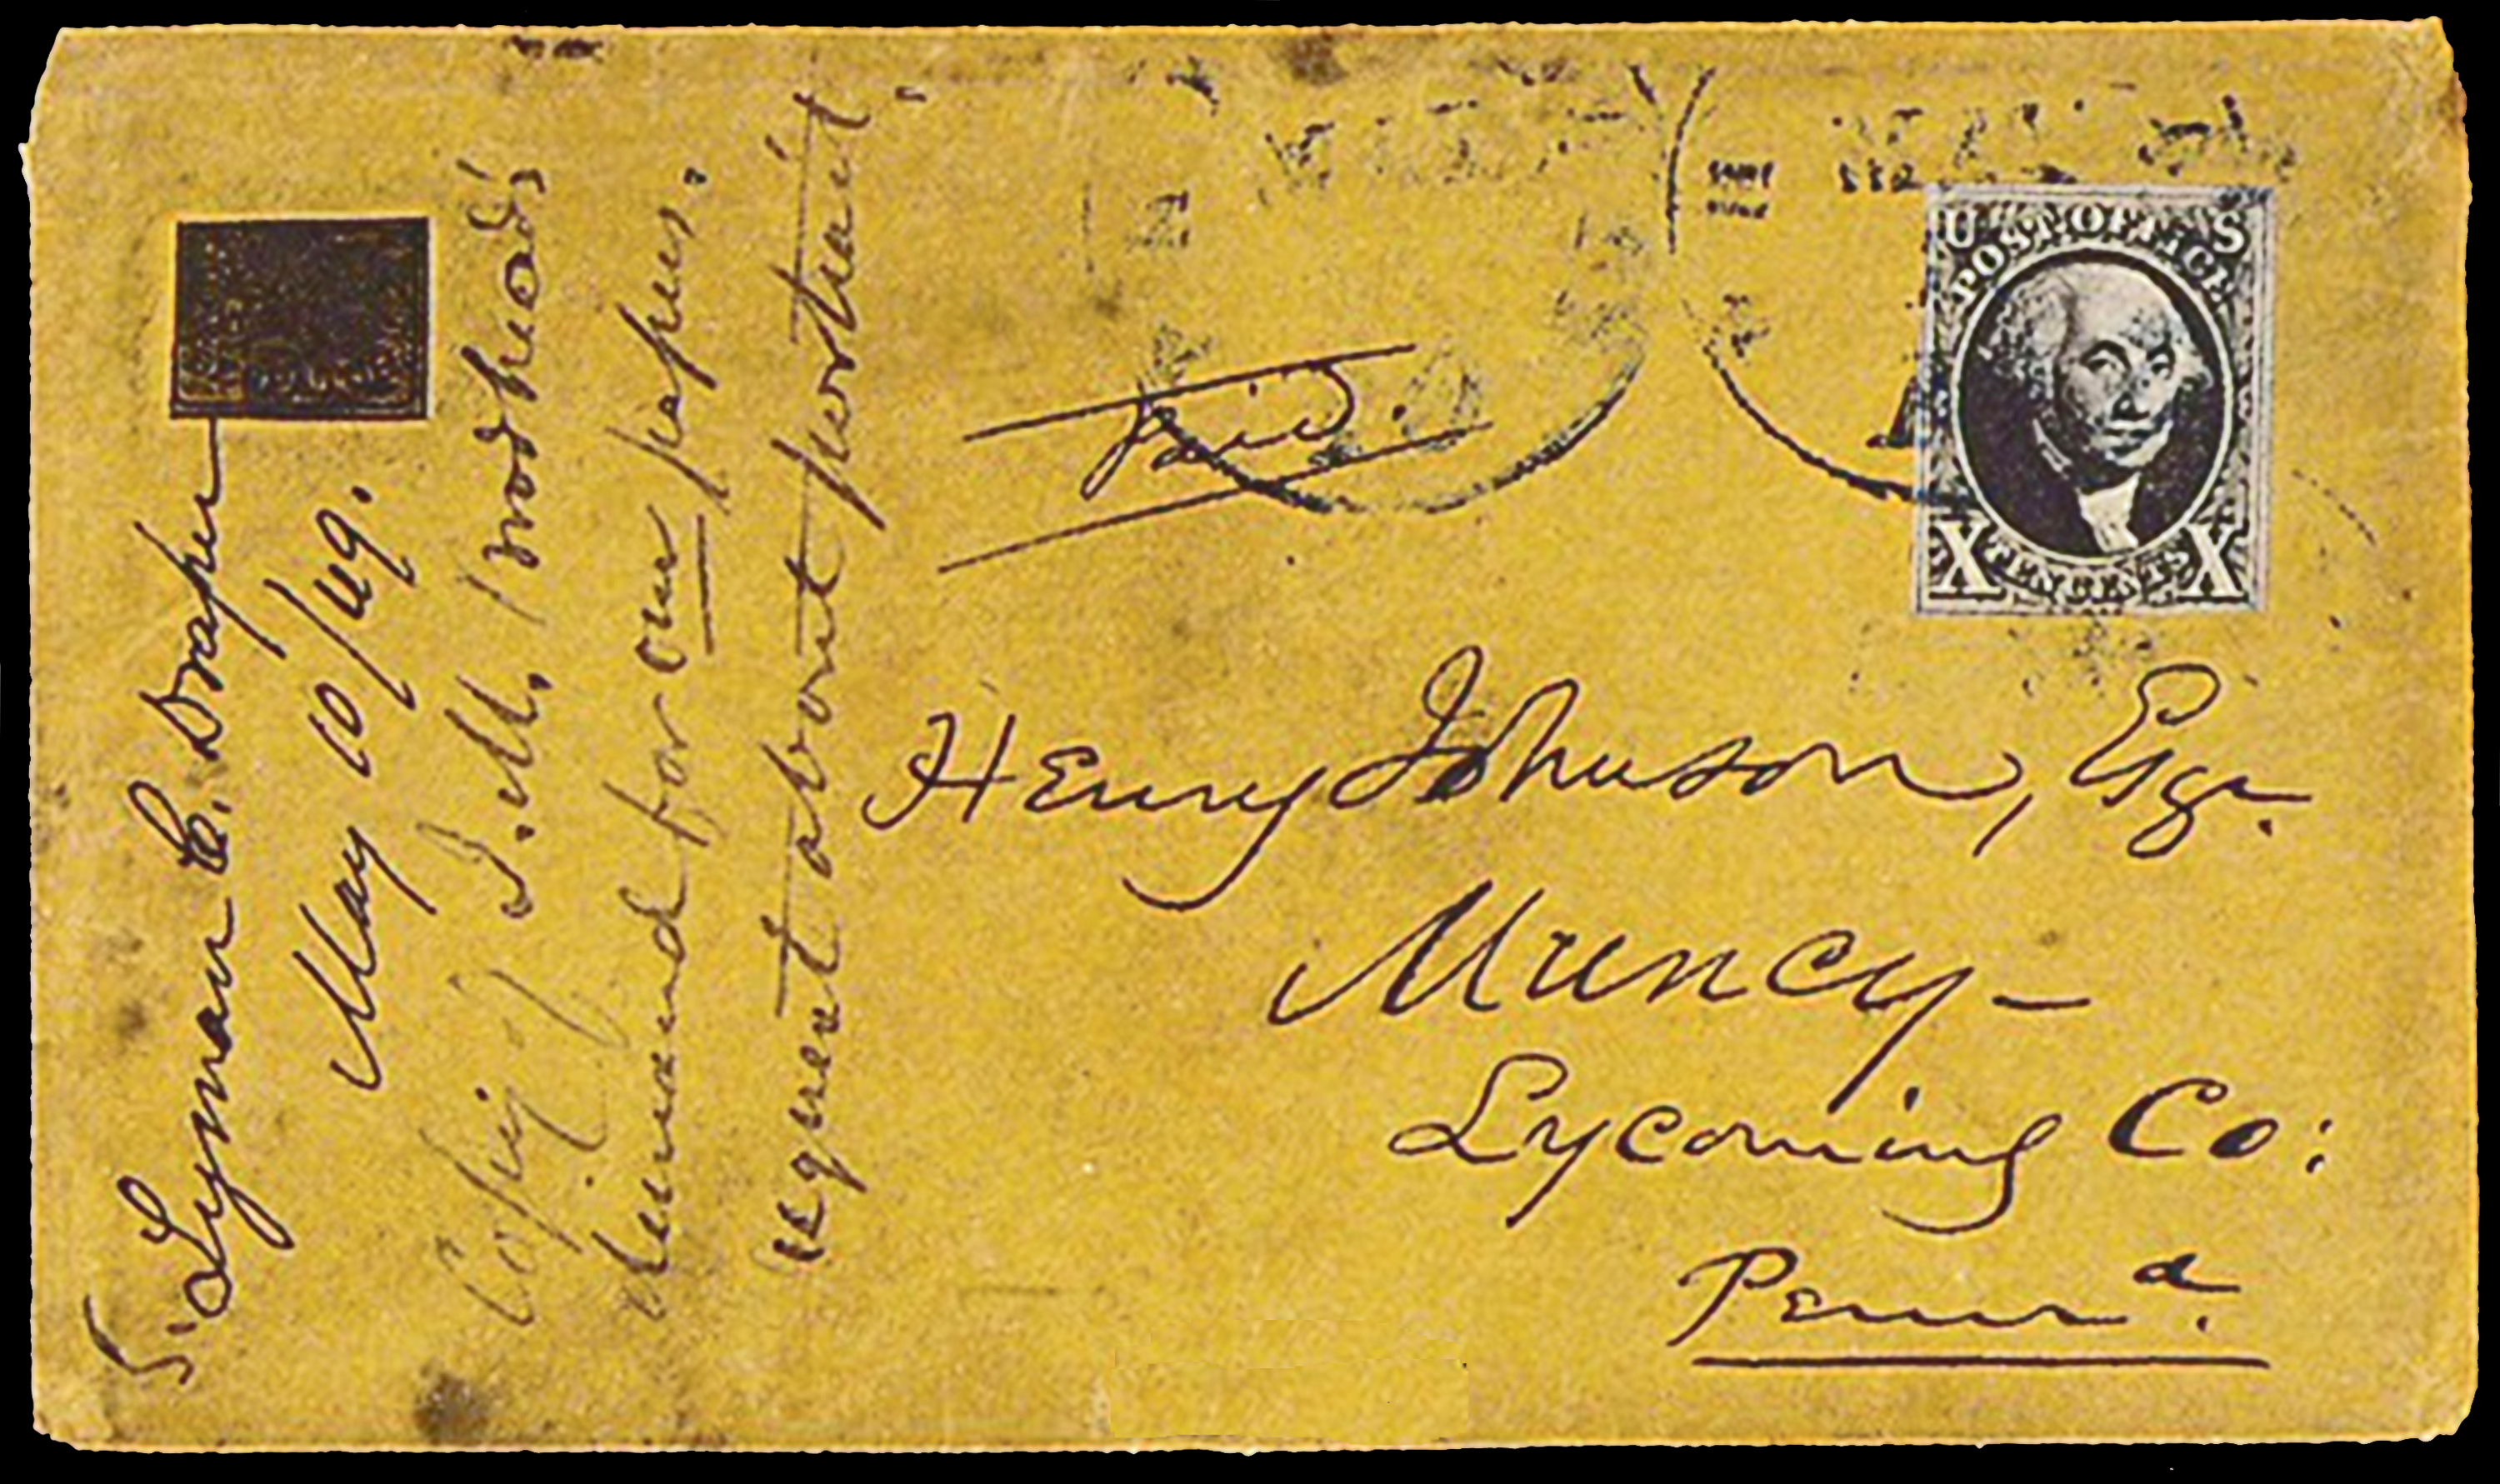 Lyman C. Draper
May 10/49.
Copy of J. M. Modhead's
demand for our papers.
request about portrait
Paid.
U S
POST OFFICE
X TEN CENTS X
Henry Johnson, Esqr.
Muncy —
Lycoming Co:
Penna.